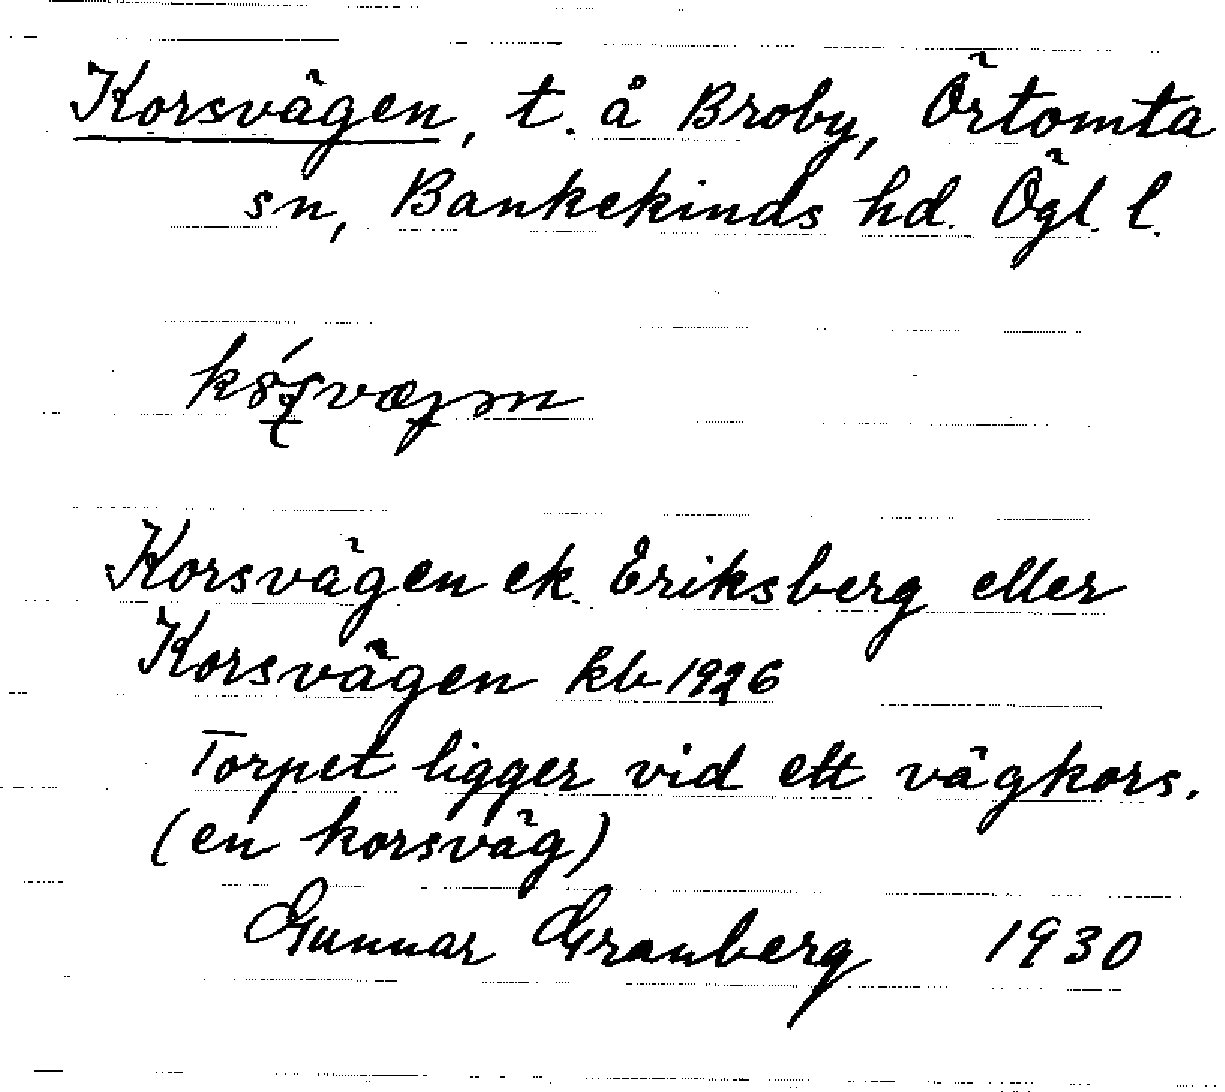 Korsvägen, t. å Broby, Örtomta
sn, Bankekinds hd. Ögl. l.
Korsvägen ek. Eriksberg eller
Korsvägen kb 1926
Torpet ligger vid ett vägkors.
(en korsväg)
Gunnar Granberg 1930